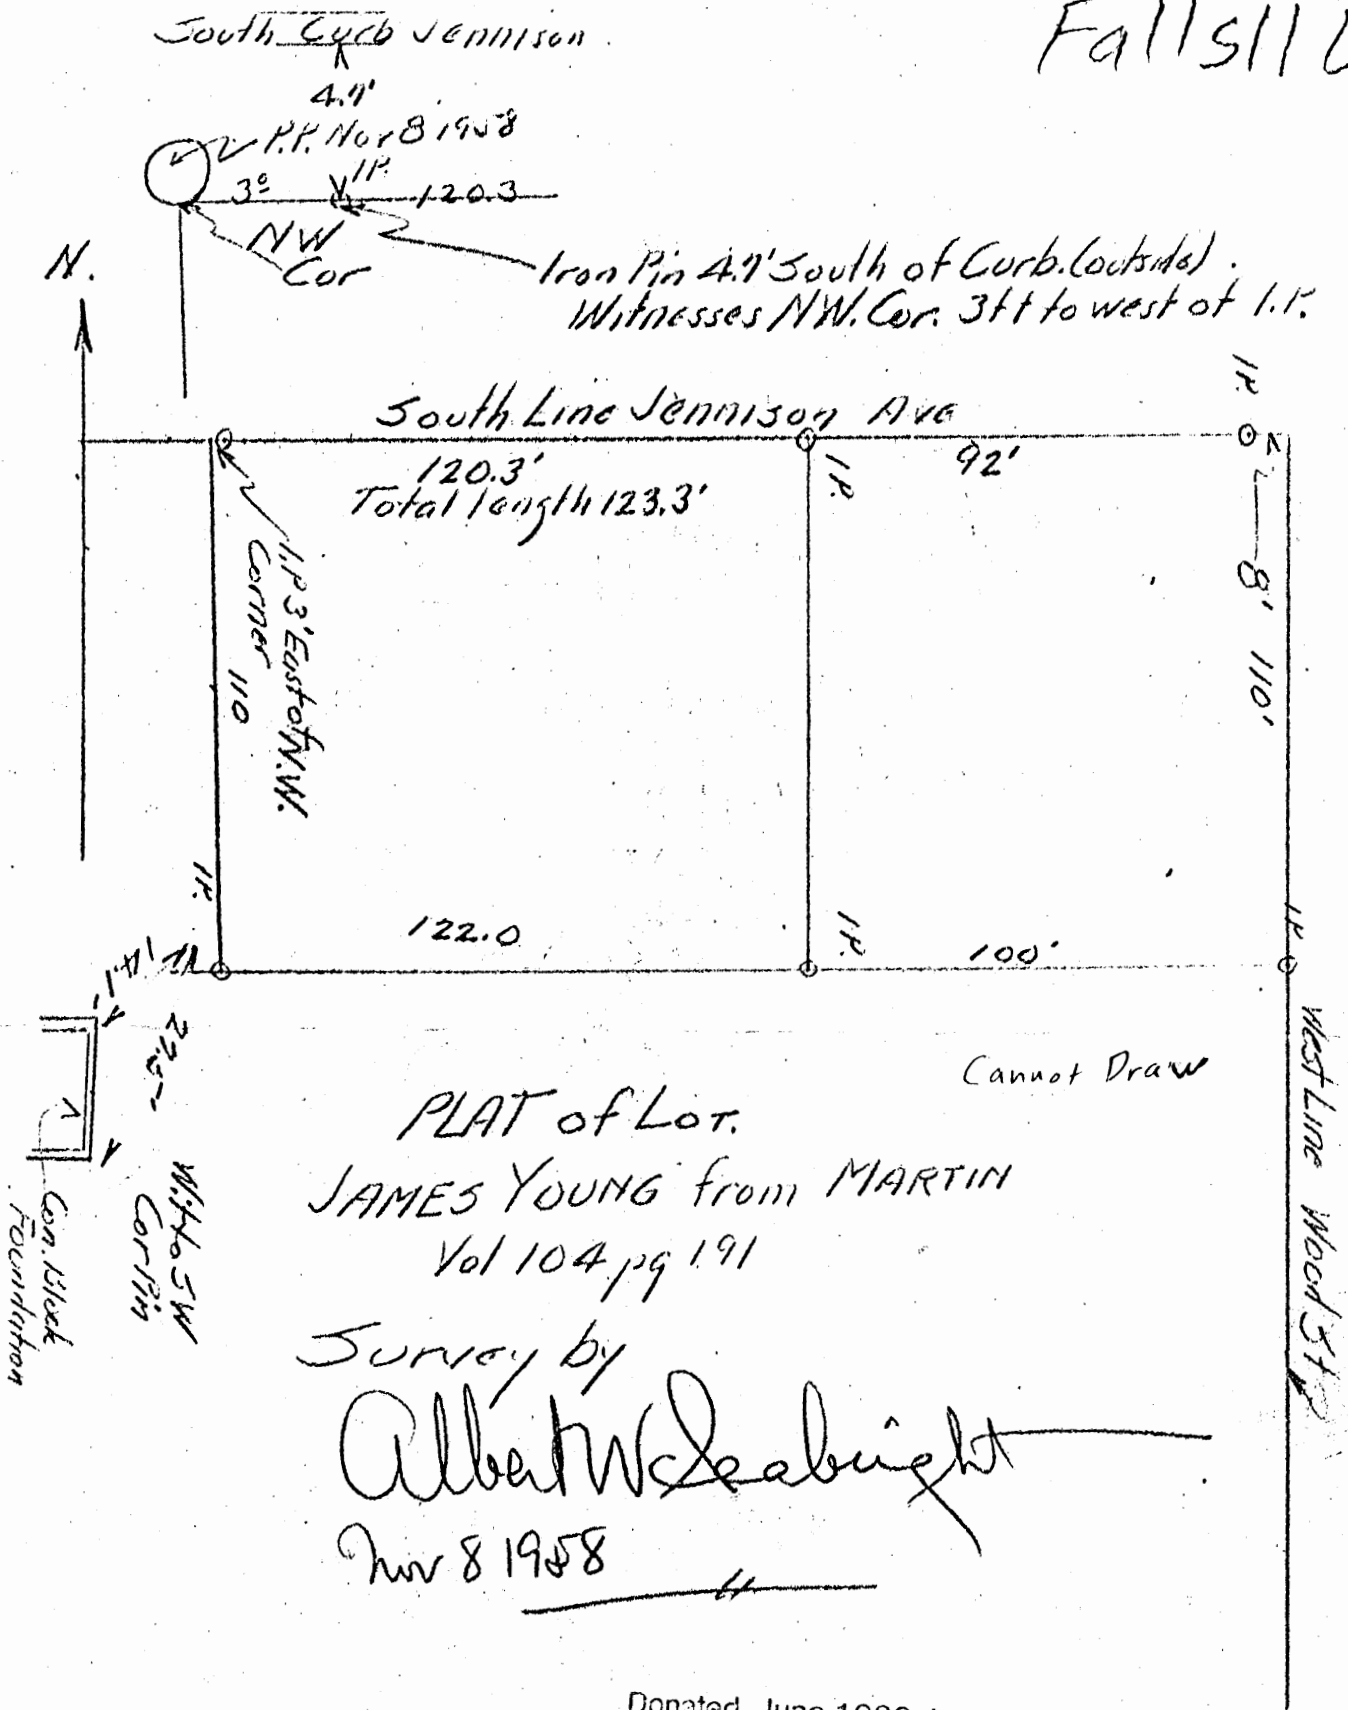 South Curb Jennison
4.9'
P.P. Nov 8 1958
I.P.
3º 120.3
NW
Cor
N.
Iron Pin 4.9' South of Curb. (outside).
Witnesses NW. Cor. 3ft to west of I.P.
I.P.
South Line Jennison Ave
120.3'
Total length 123.3'
I.P.
92'
8'
110'
I.P 3' East of N.W.
Corner
110
I.P.
122.0
I.P.
100'
I.P.
14.1'
Wit to SW
Cor Pin
Con. Block
Foundation
West Line Wood St
Cannot Draw
PLAT of LOT.
JAMES YOUNG from MARTIN
Vol 104 pg 191
Survey by
Albert W Seabright
Nov 8 1958